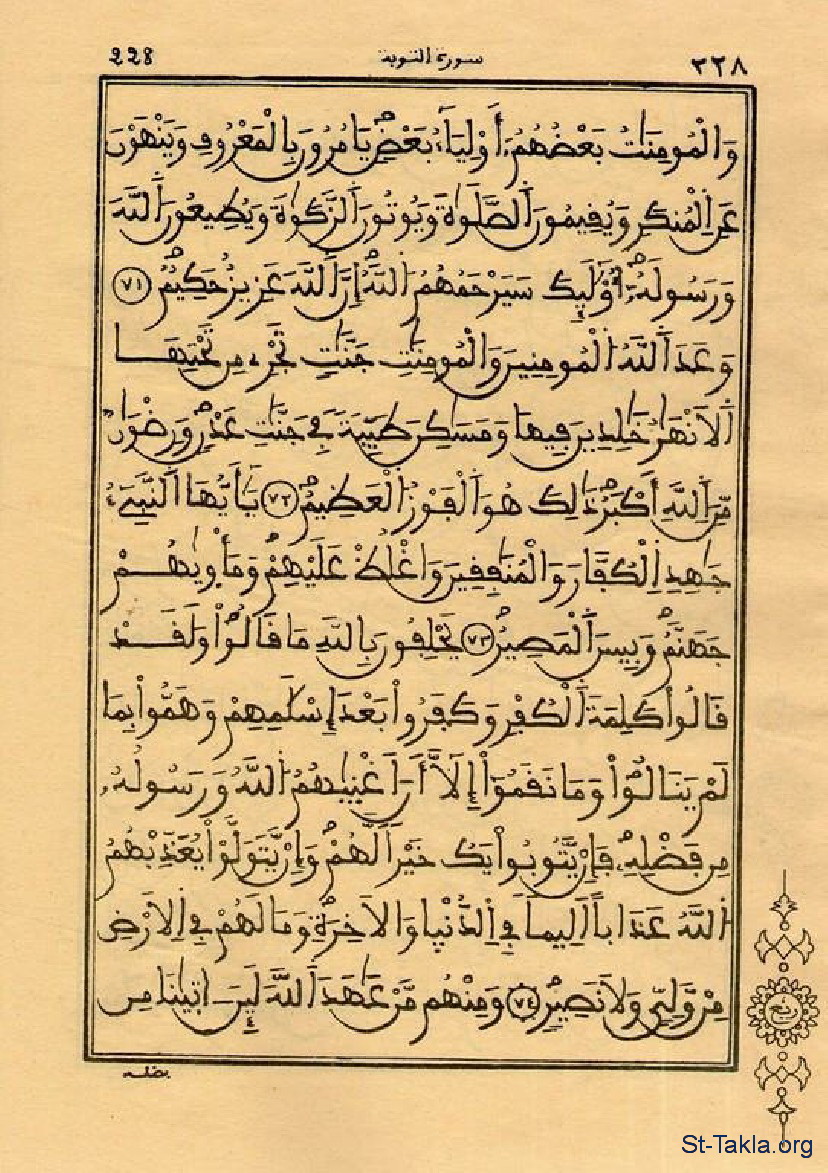 228 سورة التوبة ٢٢٨
وَالْمُومِنَٰتُ بَعْضُهُمُۥٓ أَوْلِيَآءُ بَعْضٖ يَامُرُونَ بِالْمَعْرُوفِ وَيَنْهَوْنَ
عَنِ اِلْمُنكَرِ وَيُقِيمُونَ اَلصَّلَوٰةَ وَيُوتُونَ اَلزَّكَوٰةَ وَيُطِيعُونَ اَللَّهَ
وَرَسُولَهُۥٓ أُوْلَٰٓئِكَ سَيَرْحَمُهُمُ اُللَّهُ إِنَّ اَللَّهَ عَزِيزٌ حَكِيمٞ ٧١
وَعَدَ اَللَّهُ اُلْمُومِنِينَ وَالْمُومِنَٰتِ جَنَّٰتٖ تَجْرِے مِن تَحْتِهَا
اَلَانْهَٰرُ خَٰلِدِينَ فِيهَا وَمَسَٰكِنَ طَيِّبَةٗ فِے جَنَّٰتِ عَدْنٖ وَرِضْوَٰنٞ
مِّنَ اَللَّهِ أَكْبَرُ ذَٰلِكَ هُوَ اَلْفَوْزُ اُلْعَظِيمُ ٧٢ يَٰٓأَيُّهَا اَلنَّبِےٓءُ
جَٰهِدِ اِلْكُفَّارَ وَالْمُنَٰفِقِينَ وَاغْلُظْ عَلَيْهِمْ وَمَأْوِيٰهُمْ
جَهَنَّمُ وَبِيسَ اَلْمَصِيرُ ٧٣ يَحْلِفُونَ بِاللَّهِ مَا قَالُواْ وَلَقَدْ
قَالُواْ كَلِمَةَ اَلْكُفْرِ وَكَفَرُواْ بَعْدَ إِسْلَٰمِهِمْ وَهَمُّواْ بِمَا
لَمْ يَنَالُواْ وَمَا نَقَمُوٓاْ إِلَّآ أَنَ اَغْنِيٰهُمُ اُللَّهُ وَرَسُولُهُۥ
مِن فَضْلِهِۦ فَإِنْ يَّتُوبُواْ يَكُ خَيْراٗ لَّهُمْ وَإِنْ يَّتَوَلَّوْاْ يُعَذِّبْهُمُ
اُللَّهُ عَذَاباً اَلِيماٗ فِے اِلدُّنْيَا وَالَاخِرَةِ وَمَا لَهُمْ فِے اِلَارْضِ
مِنْ وَّلِيّٖ وَلَا نَصِيرٖ ٧٤ وَمِنْهُم مَّنْ عَٰهَدَ اَللَّهَ لَئِنَ اٰتِيٰنَا مِن
فضله
ربع
St-Takla.org